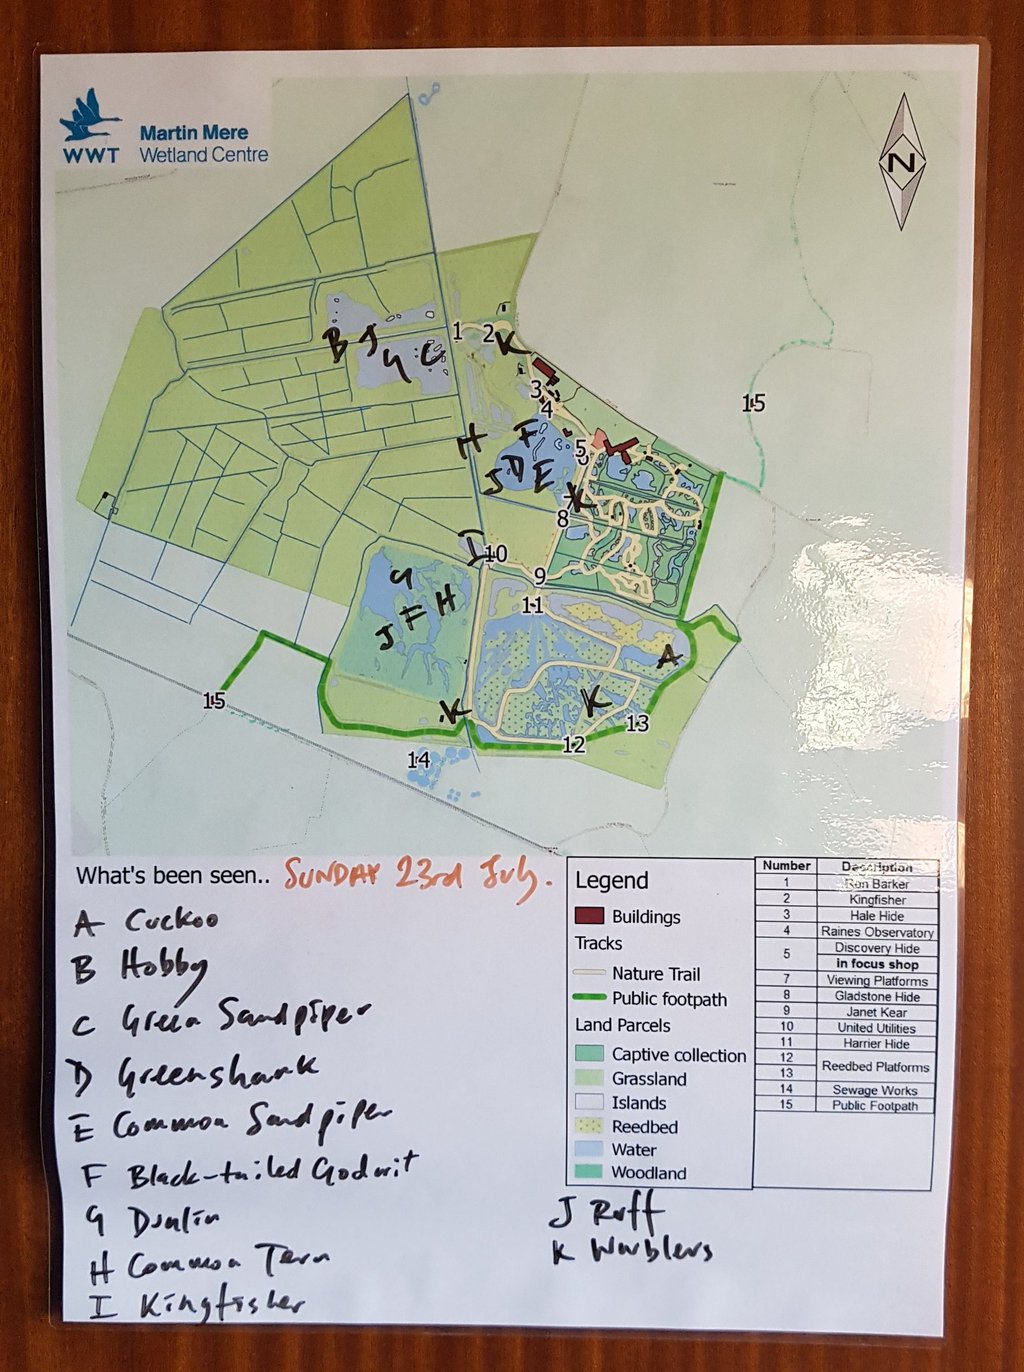 WWT
Martin Mere
Wetland Centre
N
1
2
K
B J G C
3
4
15
H F
5
J D E
K
8
I 10
9
G
11
F H
J
A
15
K
K
13
12
14
What's been seen.. SUNDAY 23rd July.
A Cuckoo
B Hobby
C Green Sandpiper
D Greenshank
E Common Sandpiper
F Black-tailed Godwit
G Dunlin
H Common Tern
I Kingfisher
J Ruff
K Warblers
Legend
Buildings
Tracks
Nature Trail
Public footpath
Land Parcels
Captive collection
Grassland
Islands
Reedbed
Water
Woodland
Number Description
1 Ron Barker
2 Kingfisher
3 Hale Hide
4 Raines Observatory
5 Discovery Hide
in focus shop
7 Viewing Platforms
8 Gladstone Hide
9 Janet Kear
10 United Utilities
11 Harrier Hide
12 Reedbed Platforms
13
14 Sewage Works
15 Public Footpath